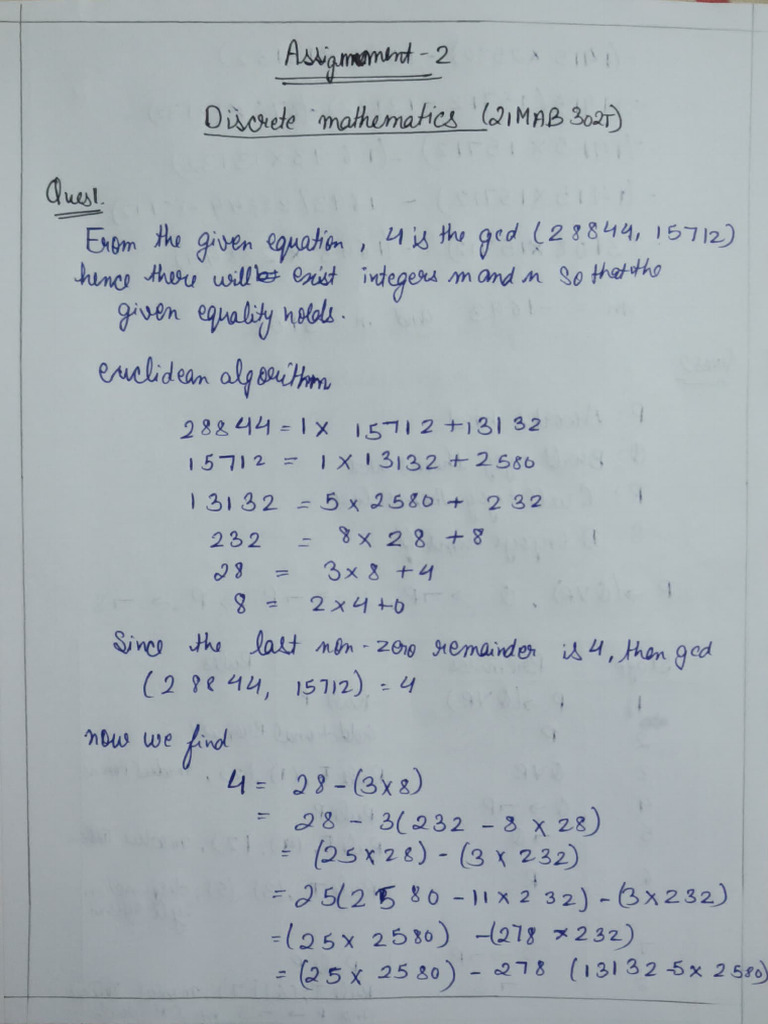 Assignment - 2
Discrete mathematics (21MAB302T)
Ques1.
From the given equation, 4 is the gcd (28844, 15712)
hence there will exist integers m and n so that the
given equality holds.
euclidean algorithm
28844 = 1 x 15712 + 13132
15712 = 1 x 13132 + 2580
13132 = 5 x 2580 + 232
232 = 8 x 28 + 8
28 = 3 x 8 + 4
8 = 2 x 4 + 0
Since the last non-zero remainder is 4, then gcd
(28844, 15712) = 4
now we find
4 = 28 - (3 x 8)
= 28 - 3(232 - 8 x 28)
= (25 x 28) - (3 x 232)
= 25(2580 - 11 x 232) - (3 x 232)
= (25 x 2580) - (278 x 232)
= (25 x 2580) - 278 (13132 - 5 x 2580)